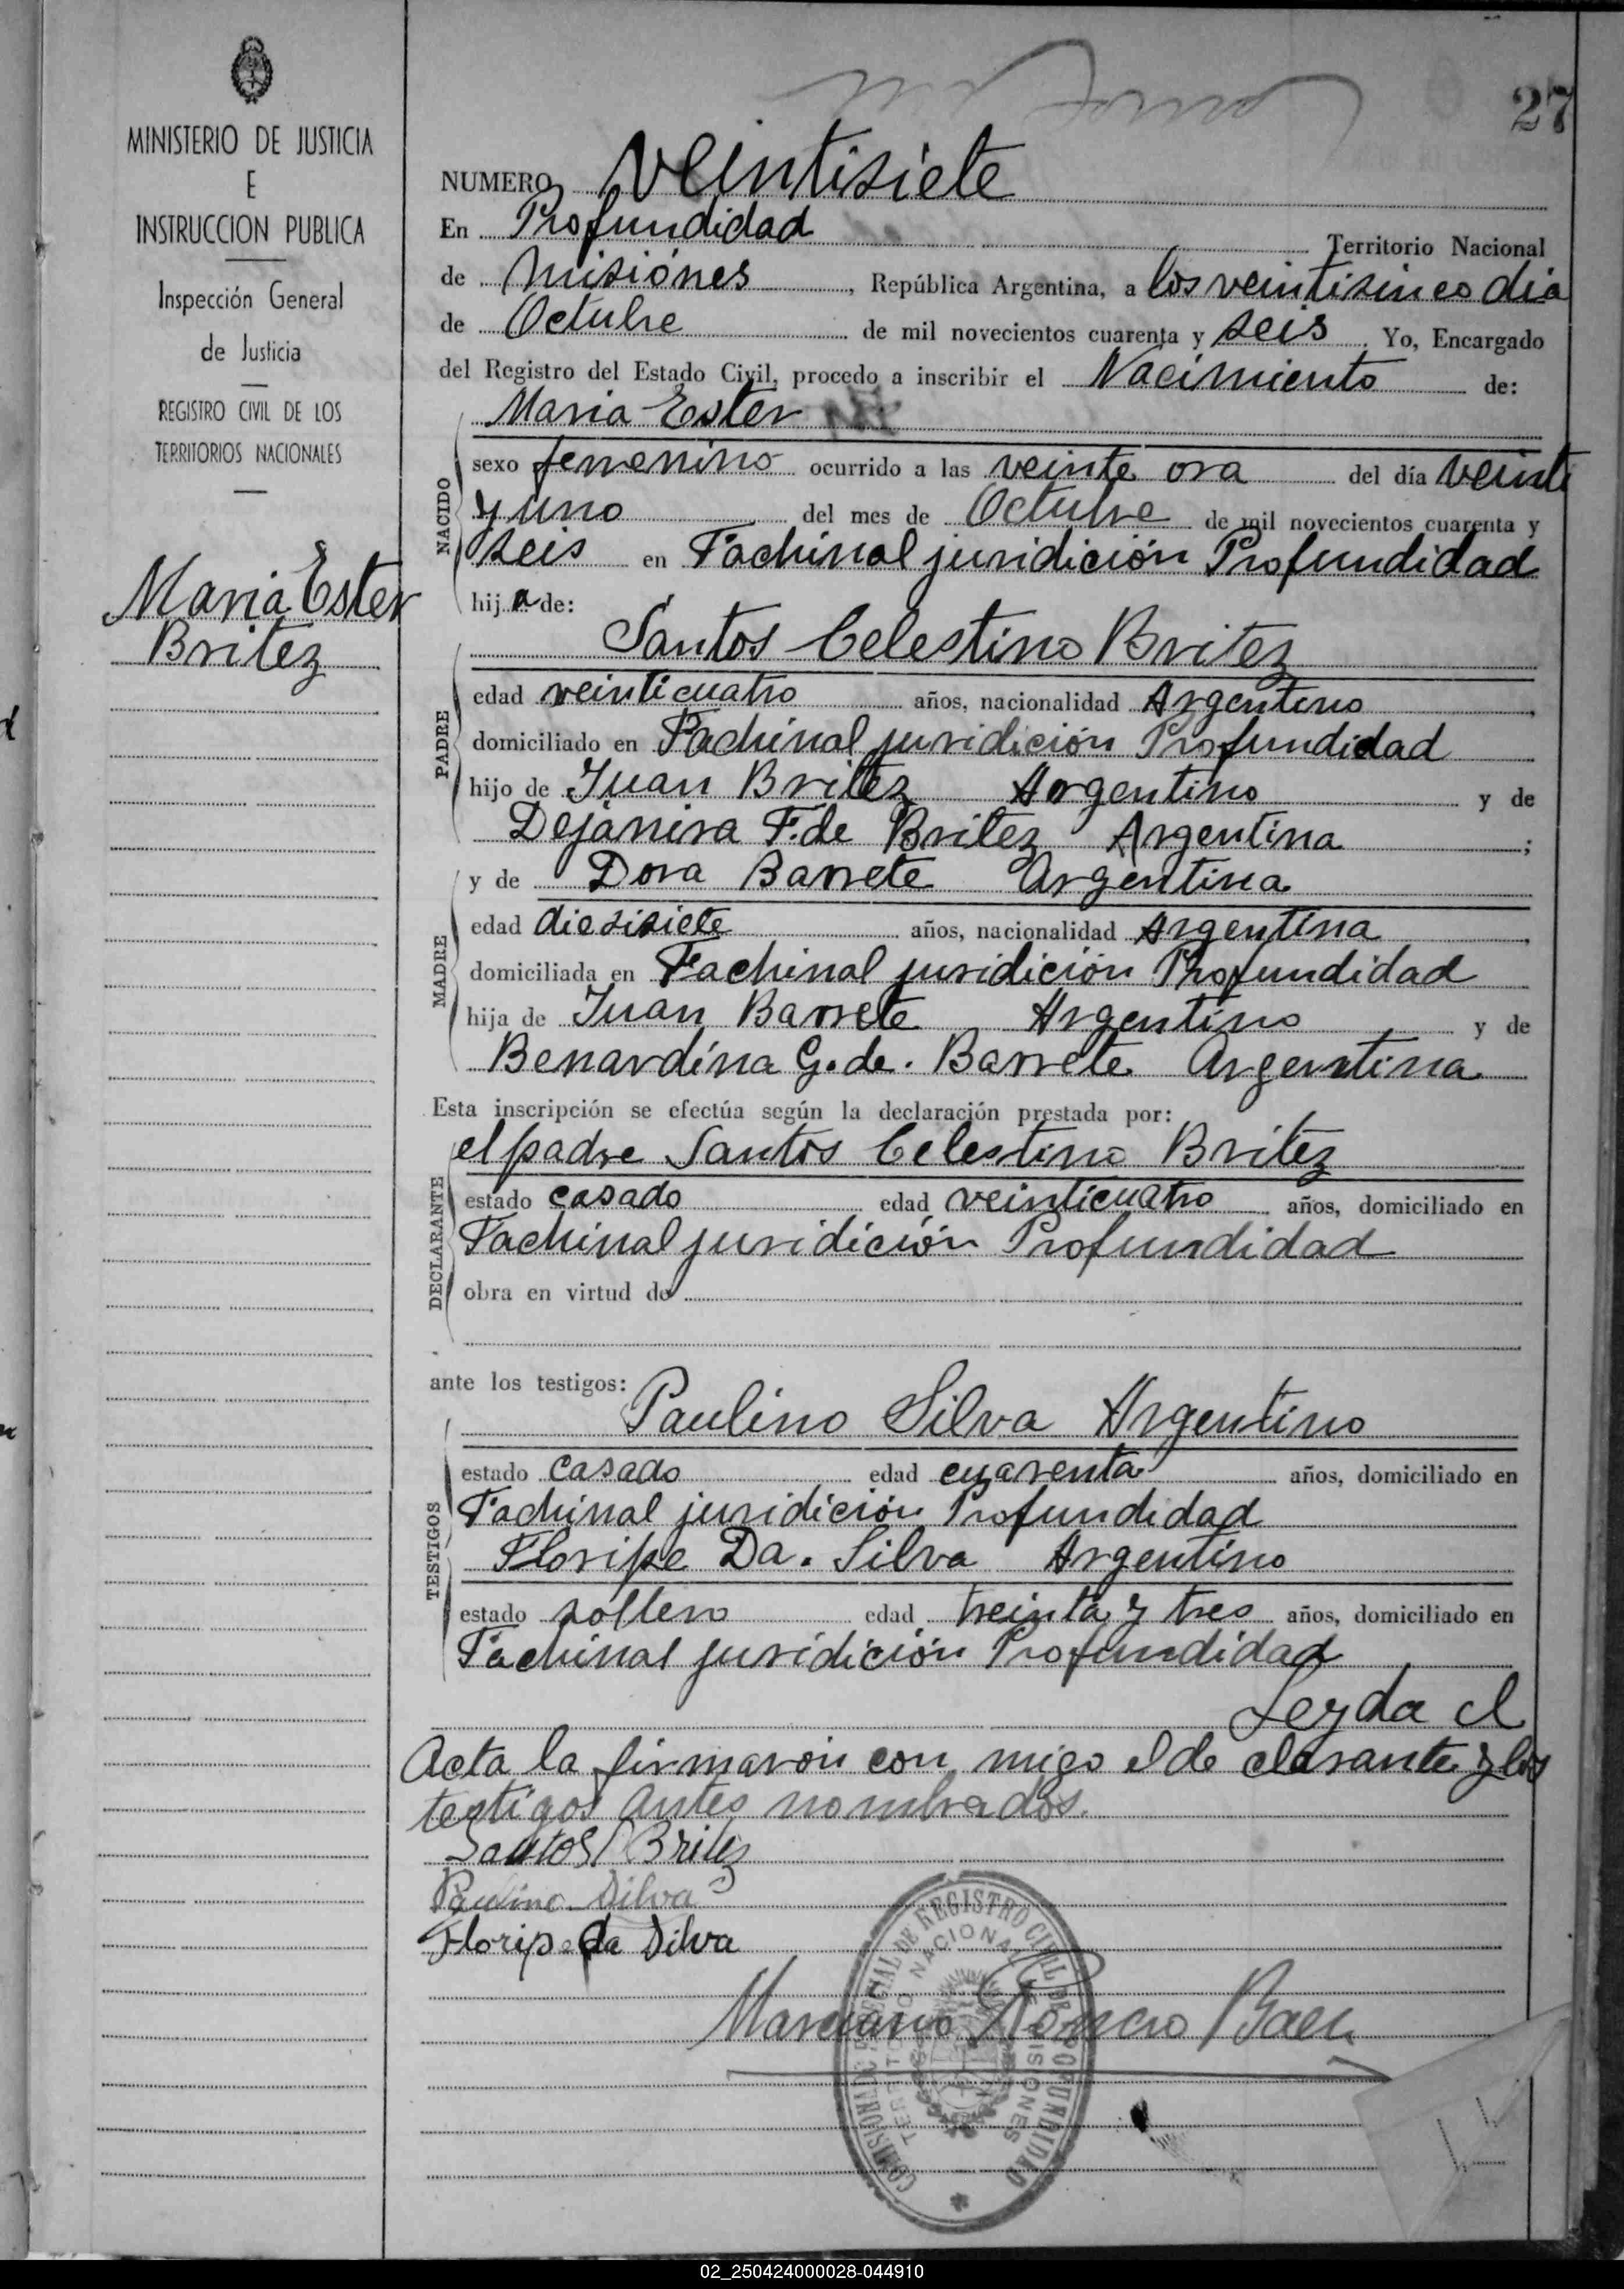 27
MINISTERIO DE JUSTICIA
E
INSTRUCCION PUBLICA
Inspección General
de Justicia
REGISTRO CIVIL DE LOS
TERRITORIOS NACIONALES
Maria Ester
Britez
NUMERO veintisiete
En Profundidad Territorio Nacional
de Misiónes, República Argentina, a los veintisinco dia
de Octubre de mil novecientos cuarenta y seis. Yo, Encargado
del Registro del Estado Civil, procedo a inscribir el Nacimiento de:
NACIDO
Maria Ester
sexo femenino ocurrido a las veinte ora del día veinti
y uno del mes de Octubre de mil novecientos cuarenta y
seis en Fachinal juridición Profundidad
hija de:
PADRE
Santos Celestino Britez
edad veinticuatro años, nacionalidad Argentino,
domiciliado en Fachinal juridición Profundidad
hijo de Juan Britez Argentino y de
Dejanira F. de Britez Argentina;
y de Dora Barrete Argentina
MADRE
edad diesisiete años, nacionalidad Argentina,
domiciliada en Fachinal juridición Profundidad
hija de Juan Barrete Argentino y de
Benardina G. de. Barrete Argentina
Esta inscripción se efectúa según la declaración prestada por:
DECLARANTE
el padre Santos Celestino Britez
estado casado edad veinticuatro años, domiciliado en
Fachinal juridición Profundidad
obra en virtud de
ante los testigos:
TESTIGOS
Paulino Silva Argentino
estado casado edad cuarenta años, domiciliado en
Fachinal juridición Profundidad
Floripe Da. Silva Argentino
estado soltero edad treinta y tres años, domiciliado en
Fachinal juridición Profundidad
Leyda el
Acta la firmaron con migo el de clarante y los
testigos antes nombrados.
Santos Britez
Paulino Silva
Floripe da Silva
COMISION ESPECIAL DE REGISTRO CIVIL DE PROFUNDIDAD
TERRITORIO NACIONAL MISIONES
02_250424000028-044910